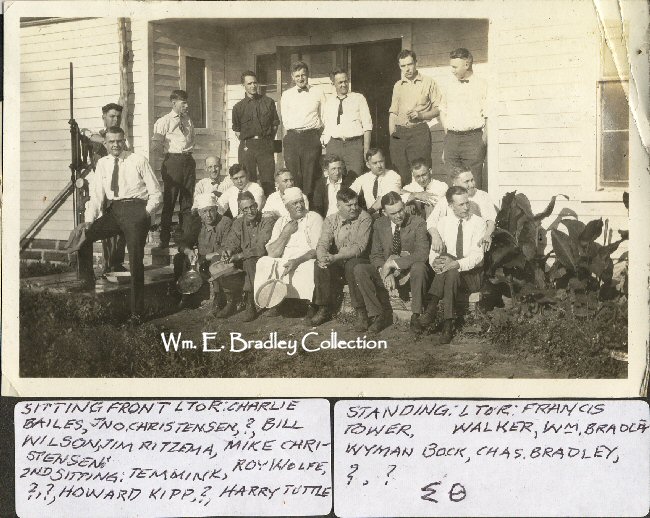 Wm. E. Bradley Collection
SITTING FRONT LTOR: CHARLIE
BAILES, JNO. CHRISTENSEN, ?, BILL
WILSON, JIM RITZEMA, MIKE CHRI-
STENSEN:
2ND SITTING: TEMMINK, ROY WOLFE,
?, ?, HOWARD KIPP, ?, HARRY TUTTLE
STANDING: LTOR: FRANCIS
TOWER, WALKER, WM, BRADLEY
WYMAN BOCK, CHAS. BRADLEY,
?, ?
ΣΘ